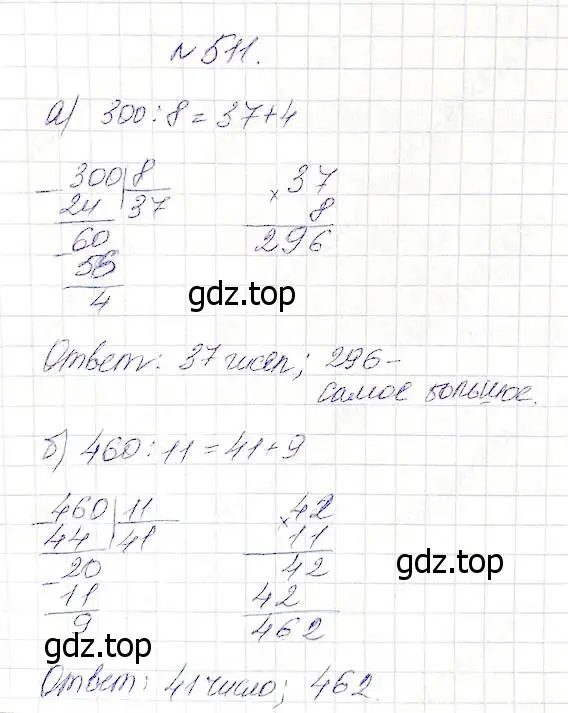 № 511.
а) 300 : 8 = 37 + 4
300 | 8
24 | 37
60
56
4
× 37
8
296
gdz.top
Ответ: 37 чисел; 296 -
самое большое.
б) 460 : 11 = 41 + 9
460 | 11
44 | 41
20
11
9
× 42
11
42
42
462
gdz.top
Ответ: 41 число; 462.
gdz.top